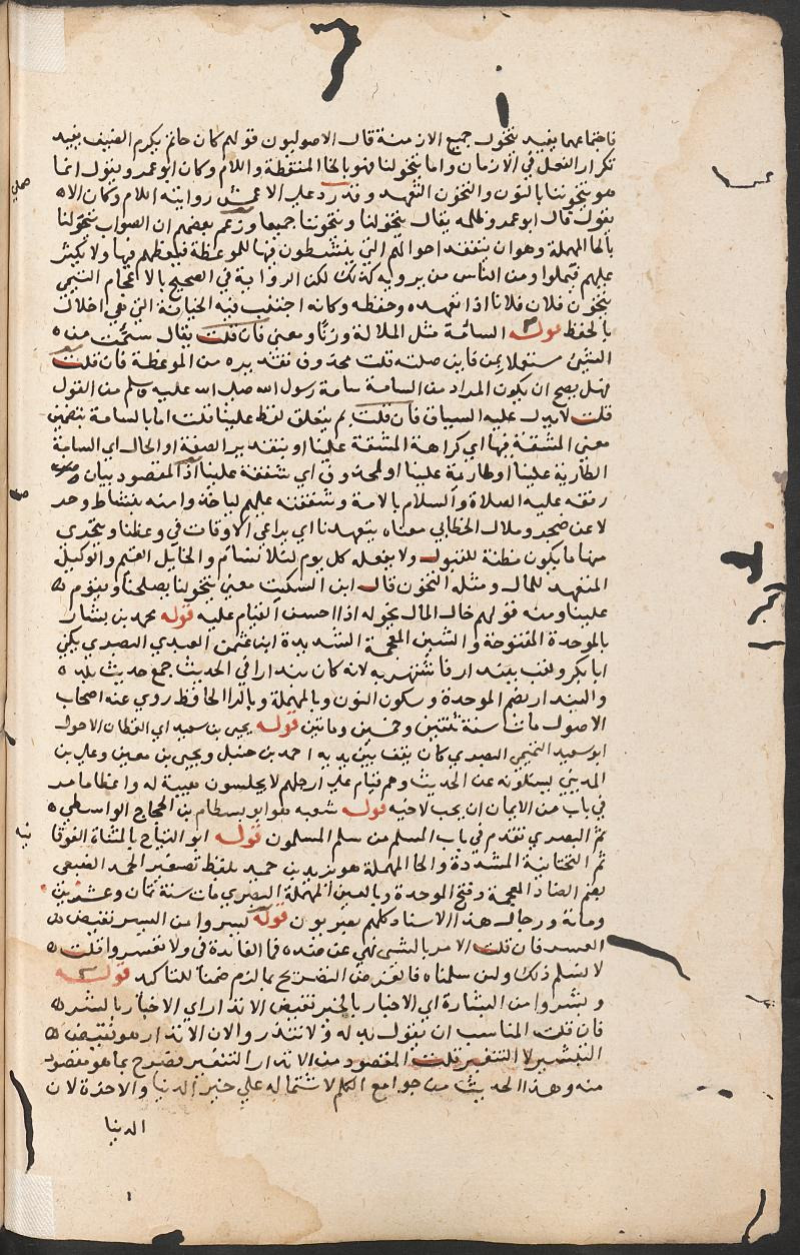 فاجتماعهما يفيد شمول جميع الازمنة قال الاصوليون قولهم كان حاتم يكرم الضيف يفيد
تكرار الفعل في الازمان واما يتخولنا فهو بالخا المنقطة واللام وكان ابو عمرو يقول انما
هو يتخوننا بالنون والتخون التعهد وقد رد على الاعمش روايته اللام وكان الا
يقول قال ابو عمرو ظلمه يقال يتخولنا ويتخوننا جميعا وزعم بعضهم ان الصواب يتحولنا
بالحا المهملة وهو ان يتفقد احوالهم التي ينشطون فيها للموعظة فيعظهم فيها ولا يكثر
عليهم فيملوا ومن الناس من يرويه كذلك لكن الرواية في الصحيح بالاعجام التيمي
يتخون فلان فلانا اذا تعهده وحفظه وكانه اجتنب فيه الخيانة التي هي اخلال
بالحفظ قوله السآمة مثل الملالة وزنا ومعنى فان قلت يقال سئمت من
الشئ مستعملا بمن فاين صلته قلت محذوف تقديره من الموعظة فان قلت
هل يصح ان يكون المراد من السامة سامة رسول الله صلى الله عليه وسلم من القول
قلت لا يدل عليه السياق فان قلت بم يتعلق لفظ علينا قلت اما بالسامة بتضمين
معنى المشقة فيها اي كراهة المشقة علينا او بتقدير الصفة او الحال اي السامة
الطارية علينا او طارية علينا او لمحذوف اي شفقة علينا اذ المقصود بيان
رفقه عليه الصلاة والسلام بالامة وشفقته عليهم لياخذوا منه بنشاط وحد
لا عن ضجر وملال الخطابي معناه يتعهدنا اي يراعي الاوقات في وعظنا ويتحرى
منها ما يكون مظنة للقبول ولا يفعله كل يوم لئلا نسام والخايل القيم والوكيل
المتعهد للمال ومثله التخون قال ابن السكيت معنى يتخولنا يصلحنا ويقوم
علينا ومنه قولهم خال المال يخوله اذا احسن القيام عليه قوله محمد بن بشار
بالموحدة المفتوحة والشين المعجمة الشديدة ابن عثمن العبدي البصري يكنى
ابا بكر ولقب ببندار فاشتهر به لانه كان بندارا في الحديث جمع حديث بلده
والبندار بضم الموحدة وسكون النون وبالمهملة وبالرا الحافظ روى عنه اصحاب
الاصول مات سنة ثنتين وخمسين ومائتين قوله يحيى بن سعيد اي القطان الاحول
ابو سعيد التميمي البصري كان يقف بين يديه احمد بن حنبل ويحيى بن معين وعلي بن
المديني يسئلونه عن الحديث وهم قيام على ارجلهم لا يجلسون هيبة له واعظاما مر
في باب من الايمان ان يحب لاخيه قوله شعبه هو ابو بسطام بن الحجاج الواسطي
ثم البصري تقدم في باب المسلم من سلم المسلمون قوله ابو التياح بالمثناة الفوقا
ثم التحتانية المشددة والحا المهملة هو يزيد بن حميد بلفظ تصغير الحمد الضبعي
بضم الضاد المعجمة وفتح الموحدة وبالعين المهملة البصري مات سنة ثمان وعشرين
ومائة ورجال هذا الاسناد كلهم بصريون قوله يسروا من اليسر نقيض
العسر فان قلت الامر بالشئ نهي عن ضده فما الفائدة في ولا تعسروا قلت
لا نسلم ذلك ولئن سلمناه فالغرض التصريح بما لزم ضمنا للتاكيد قوله
وبشروا من البشارة اي الاخبار بالخير نقيض الانذار اي الاخبار بالشر
فان قلت المناسب ان يقول بدله ولا تنذروا لان الانذار هو نقيض
التبشير لا التنفير قلت المقصود من الانذار التنفير فصرح بما هو مقصود
منه وهذا الحديث من جوامع الكلم لاشتماله على خير الدنيا والاخرة لان
الدنيا